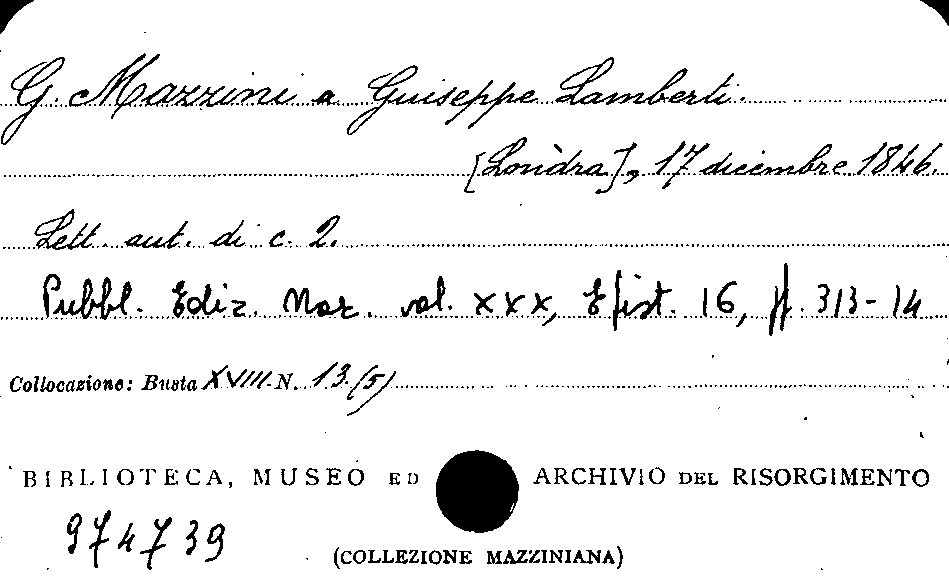 G. Mazzini a Giuseppe Lamberti.
[Londra], 17 dicembre 1846.
Lett. aut. di c. 2.
Pubbl. Ediz. Naz. vol. XXX, Epist. 16, pp. 313-14
Collocazione: Busta XVIII N. 13.(5)
BIBLIOTECA, MUSEO ED ARCHIVIO DEL RISORGIMENTO
974739
(COLLEZIONE MAZZINIANA)